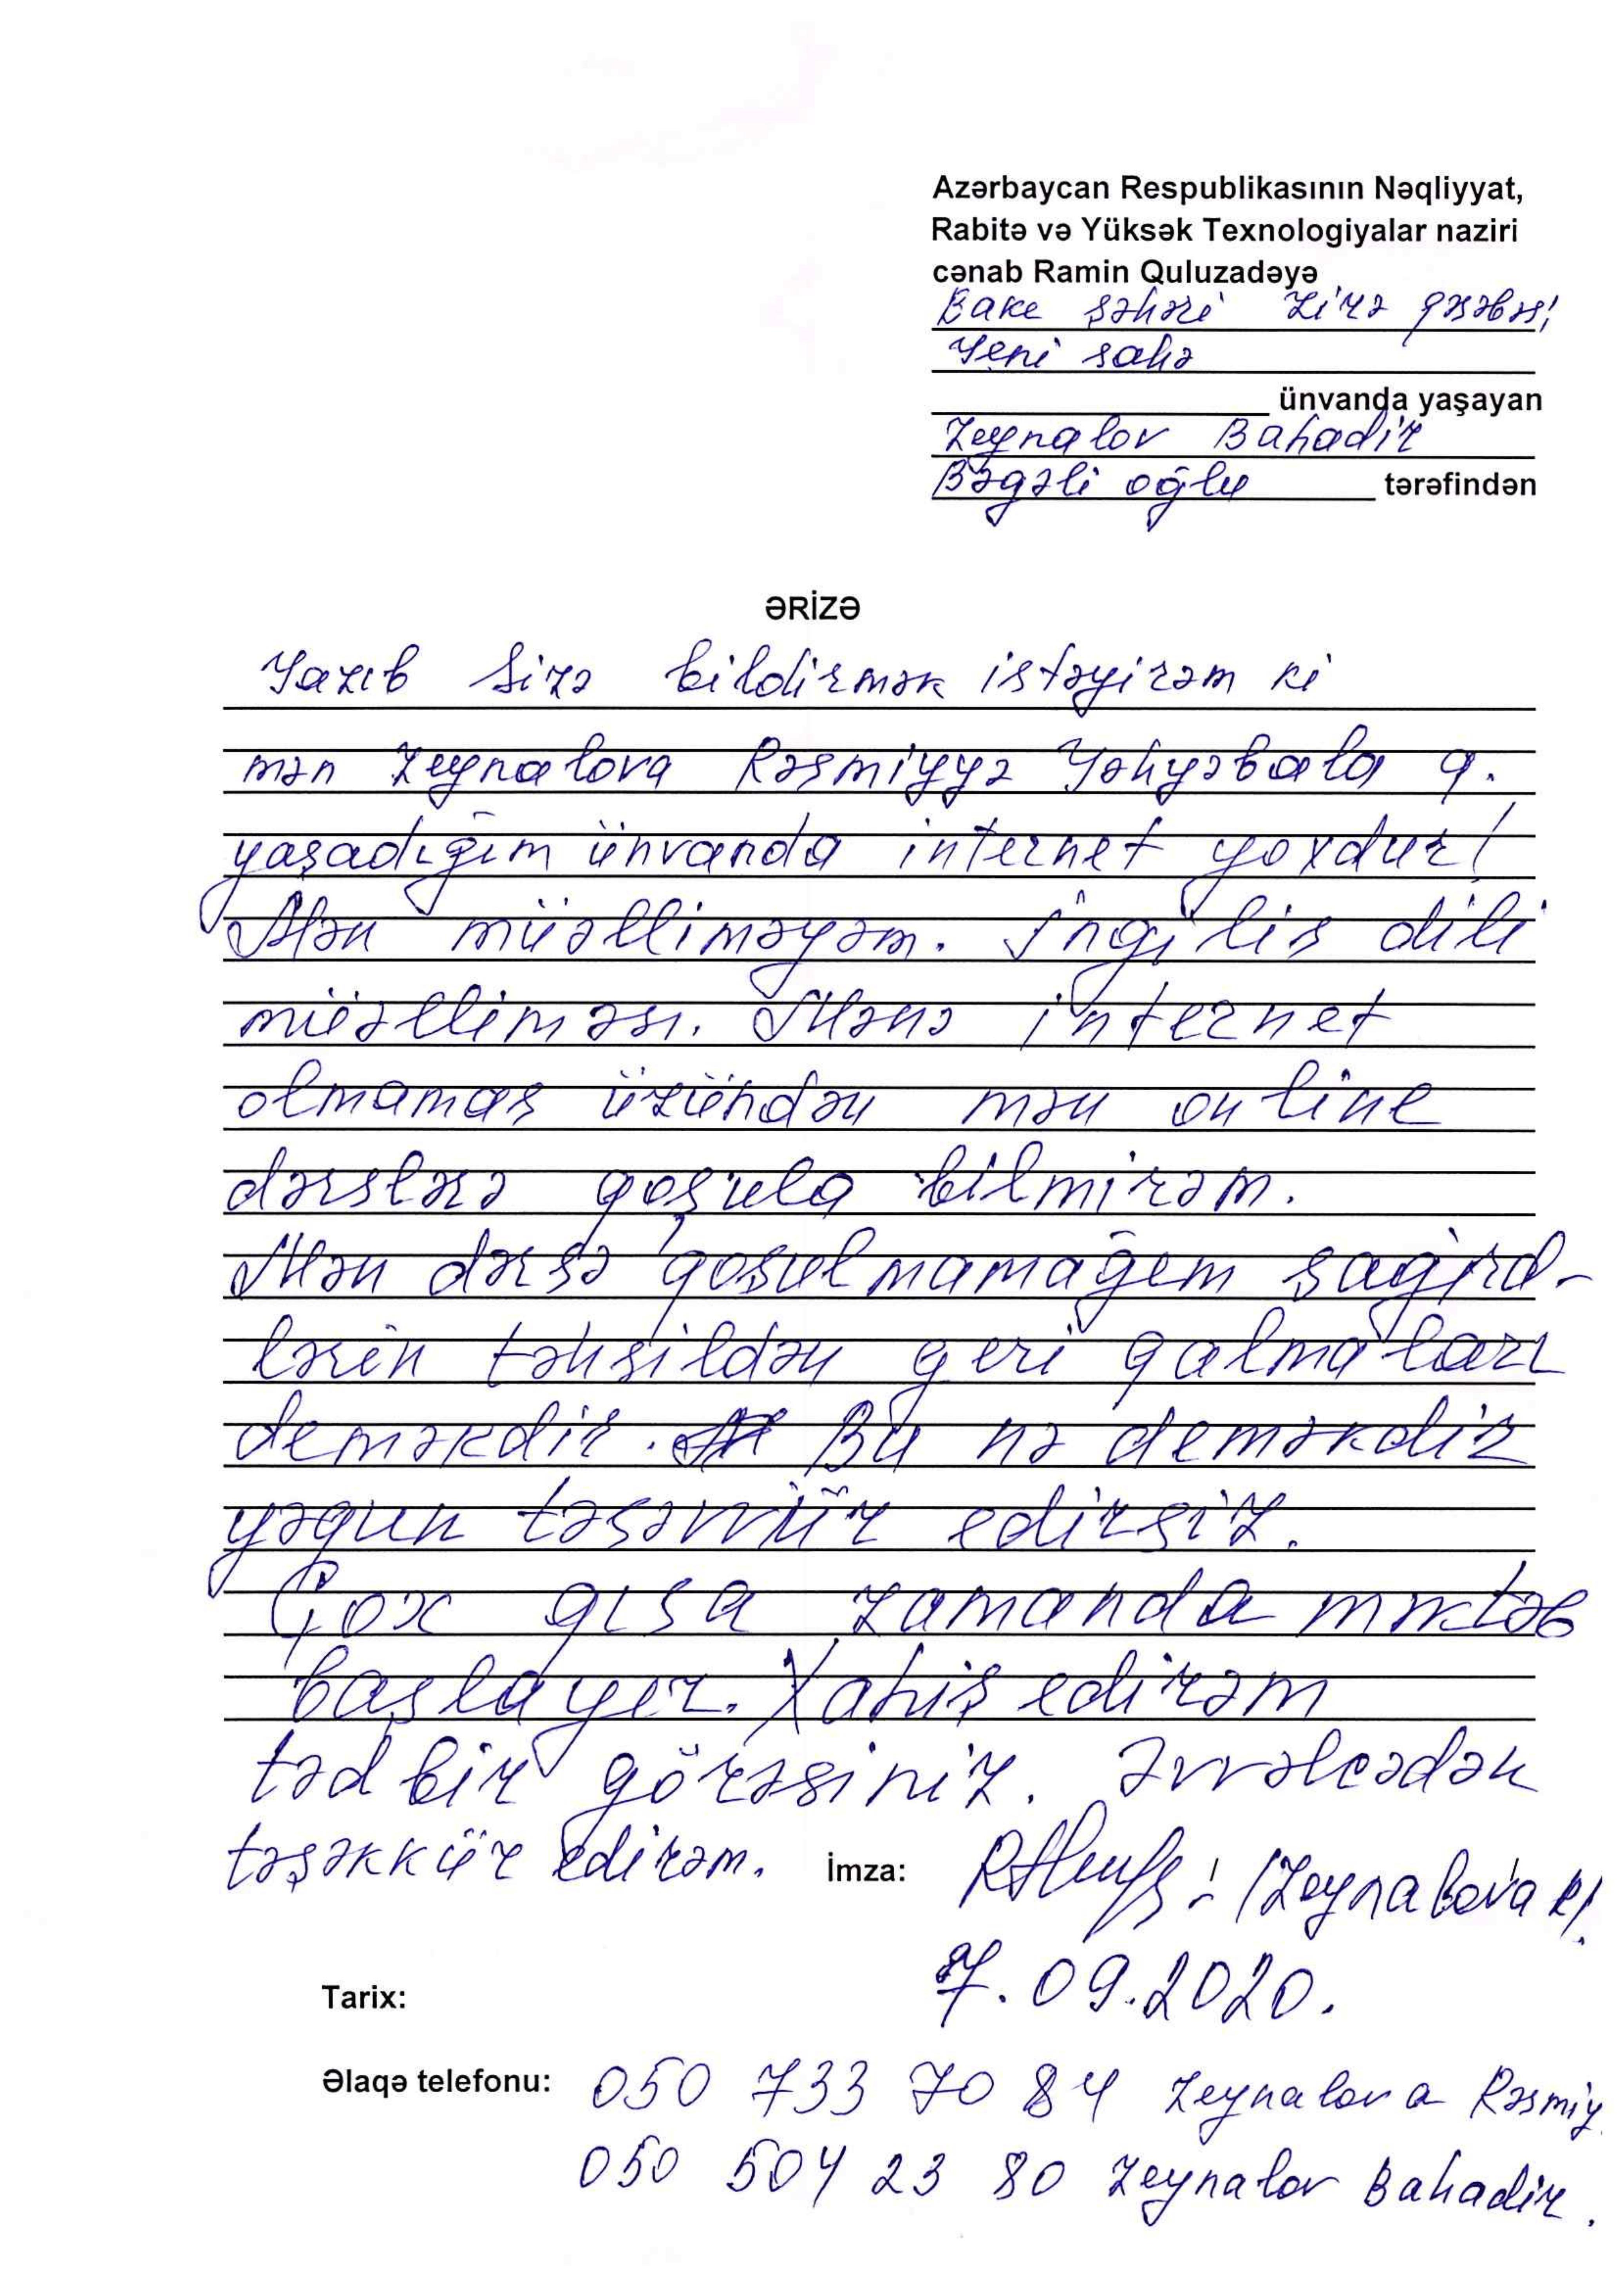 Azərbaycan Respublikasının Nəqliyyat,
Rabitə və Yüksək Texnologiyalar naziri
cənab Ramin Quluzadəyə
Bakı şəhəri Zirə qəsəbəsi
Yeni sahə
ünvanda yaşayan
Zeynalov Bahadir
Bəgəli oğlu tərəfindən
ƏRİZƏ
Yazıb Sizə bildirmək istəyirəm ki
mən Zeynalova Rəsmiyyə Yəhyəbala q.
yaşadığım ünvanda internet yoxdur!
Mən müəlliməyəm. İngilis dili
müəlliməsi. Mənə internet
olmaması üzündən mən online
dərslərə qoşula bilmirəm.
Mən dərsə qoşulmamağım şagird-
lərin təhsildən geri qalmaları
deməkdir. Bu nə deməkdir
yəqun təsəvvür edirsiz.
Çox qısa zamanda məktəb
başlayır. Xahiş edirəm
tədbir görəsiniz. Əvvəlcədən
təşəkkür edirəm. İmza: (Zeynalova R)
7.09.2020.
Tarix:
Əlaqə telefonu: 050 733 70 84 Zeynalova Rəsmiy
050 504 23 80 Zeynalov Bahadir.